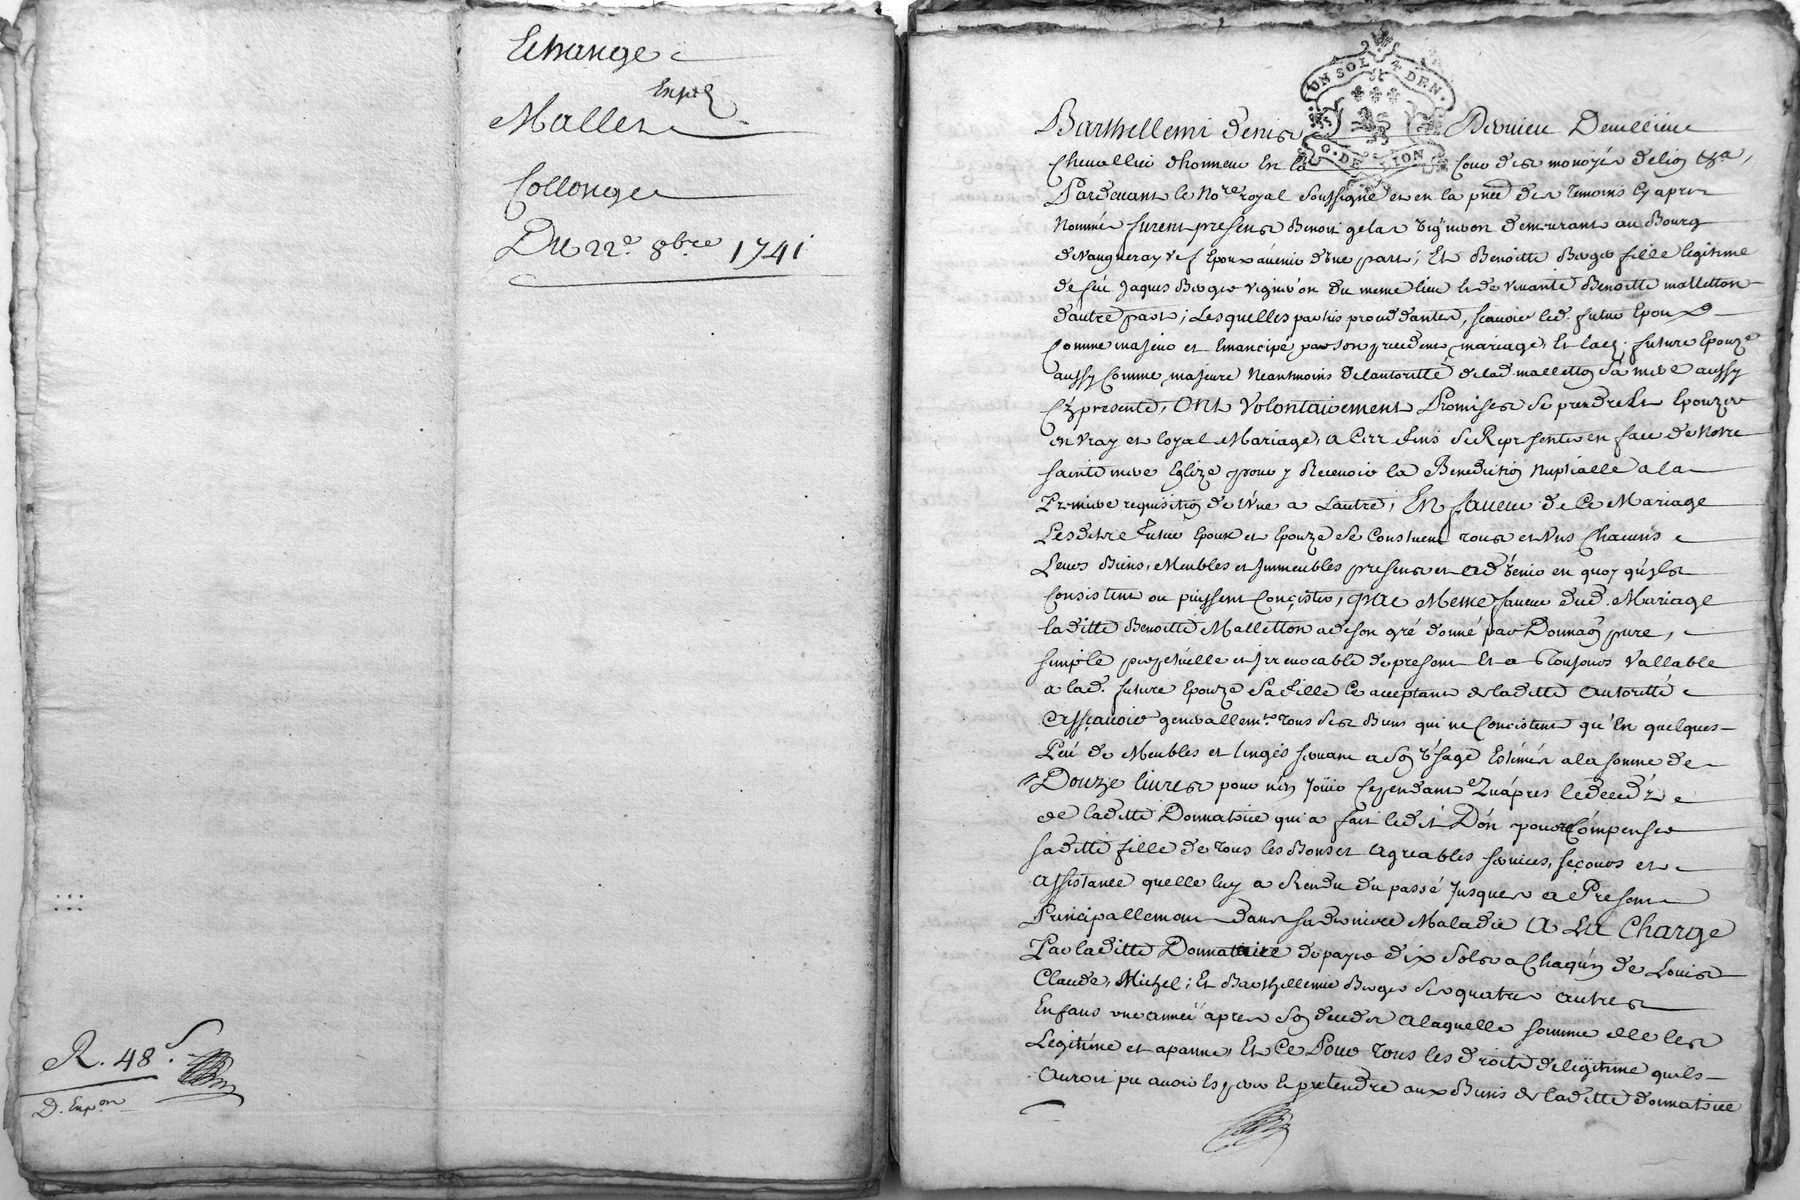 Echange
Exped
Mallet
Collonge
Du 22e 8bre 1741
R. 48 s.
D. Expon
UN SOL 4 DEN.
G. DE LION
Barthellemi denis Dervieu Devilliéu
Chevallier dhonneur En la Cour des monoyes de lion &a,
Pardevant le Nore royal soussigné et en la pñce des temoins cy apres
Nommés furent presens Benoit gelas vigneron demeurant au Bourg
de vaugneray vef Epoux avenir dune part; Et Benoitte Berger fille legitime
de feu Jaques Berger vigneron du meme lieu et de vivante Benoitte malletton
dautre part; Lesquelles parties proceddantes, scavoir led. futur Epoux
Comme majeur et Emancipé par son precedent mariage, Et lad. future Epouze
aussy Comme majeure Neantmoins de lautoritté de lad malletton sa mere aussy
Cy presente, Ont Volontairement Promis de prendre Et Epouzer
en vray et loyal Mariage, a Cett fins se Representer en face de Notre
sainte mere Eglize pour y Recevoir la Benediction Nuptialle a la
Premiere requisition de l'Une a Lautre, En faveur de Ce Mariage
Lesdits futur Epoux et Epouze se Constituent tous et Uns Chacuns
Leurs Biens, Meubles et Immeubles presens et advenir en quoy qu'ils
Consistent ou puissent Conçister, Même faveur dud. Mariage
laditte Benoitte Malletton a de son gré donné par Donnaon pure,
simple perpetuelle et Irrevocable de present Et a Toujours Vallable
a lad. future Epouze sa fille Ce acceptant de laditte autoritté
assçavoir generallemt tous ses Biens qui ne Concistent qu'En quelques
Peu de Meubles et linges servant a son Usage Estimés a la somme de
Douze livres pour n'en Jouir Cependant qu'apres le deced
de laditte Donnatrice qui a fait ledit Don pour recompenser
saditte fille de tous les Bons et agreables services, seçours et
assistance quelle luy a Rendu du passé Jusques a Present
Principallement dans sa derniere Maladie A La Charge
Par laditte Donnataire de payer dix sols a Chaqun de Louis
Claude, Michel; Et Barthellemie Berger ses quatres autres
Enfans une année apres son decedes a laquelle somme elle les
Legitime et apanne, Et Ce Pour tous les droits de legitime quils
auroit pu avoir Esperer Et pretendre aux Biens de laditte donnatrice